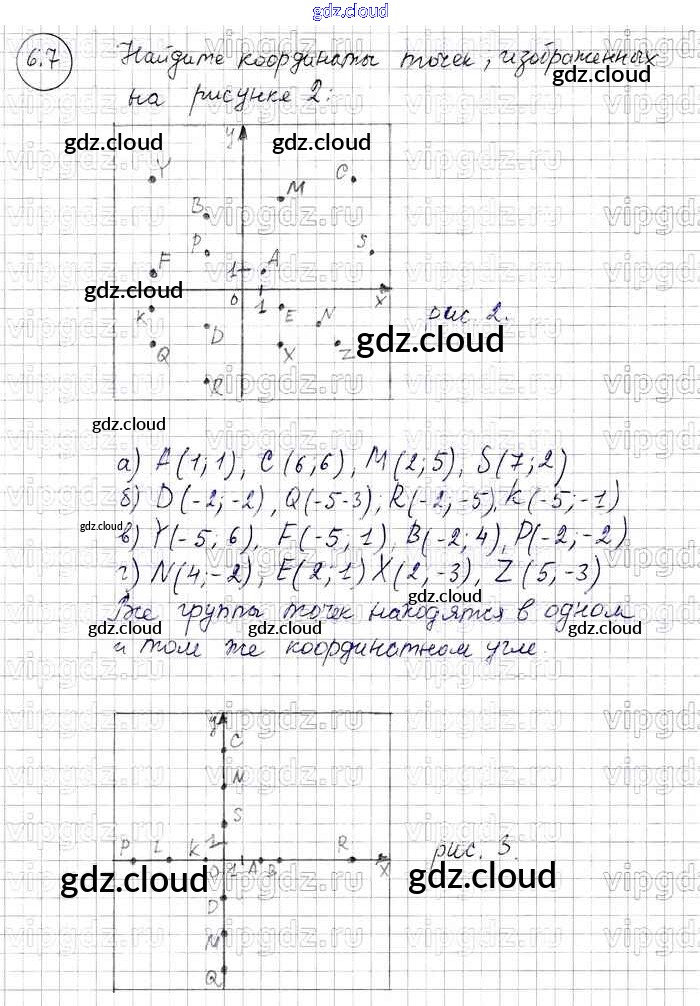 gdz.cloud
6.7 Найдите координаты точек, изображенных
на рисунке 2:
gdz.cloud gdz.cloud gdz.cloud
y
Y C
B M
P S
F 1 A
gdz.cloud
0 1 X
K E N
D рис 2.
Q X Z gdz.cloud
R
gdz.cloud
а) A(1;1), C(6;6), M(2;5), S(7;2)
б) D(-2;-2), Q(-5-3), R(-2;-5), K(-5;-1)
gdz.cloud
в) Y(-5;6), F(-5;1), B(-2;4), P(-2;-2)
г) N(4;-2), E(2;1) X(2,-3), Z(5,-3)
gdz.cloud
Все группы точек находятся в одном
gdz.cloud gdz.cloud gdz.cloud
и том же координатном угле.
y
C
N
S
1
P L K 0 1 A B R X
рис. 3.
gdz.cloud gdz.cloud
D
M
Q
vipgdz.ru